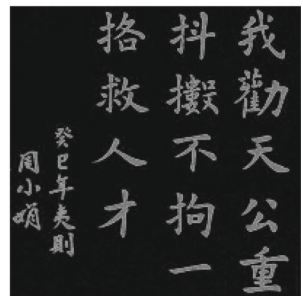 我勸天公重
抖擻不拘一
挌救人才
癸巳年夷則
周小娟